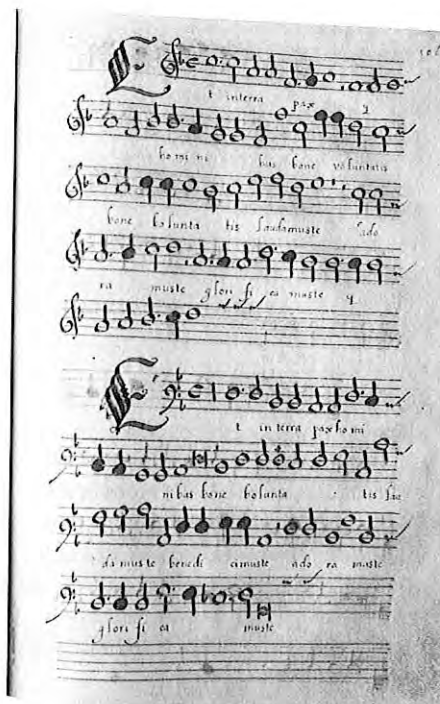 Et in terra pax
ho mi ni bus bone voluntatis
bone bolunta tis laudamuste ado
ra muste glori fi ca muste
Et in terra pax ho mi
nibus bone bolunta tis lau
damuste benedi cimuste ado ra muste
glori fi ca muste